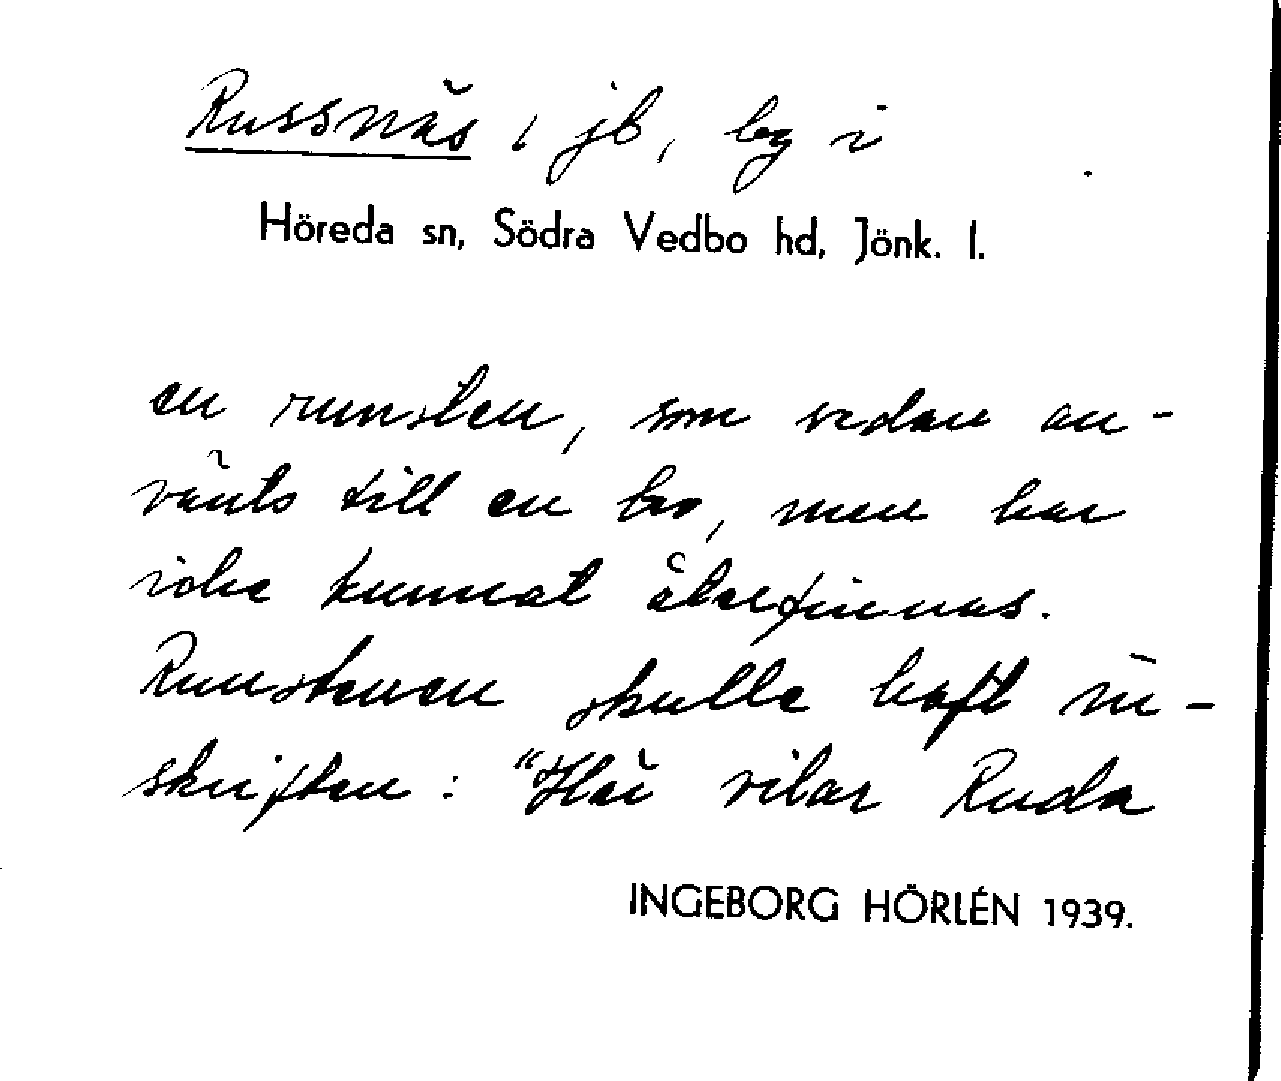 Russnäs i jb, by i
Höreda sn, Södra Vedbo hd, Jönk. l.
en runsten, som sedan an-
vänts till en bro, men har
icke kunnat återfinnas.
Runstenen skulle haft in-
skriften: "Här vilar Ruda
INGEBORG HÖRLÉN 1939.